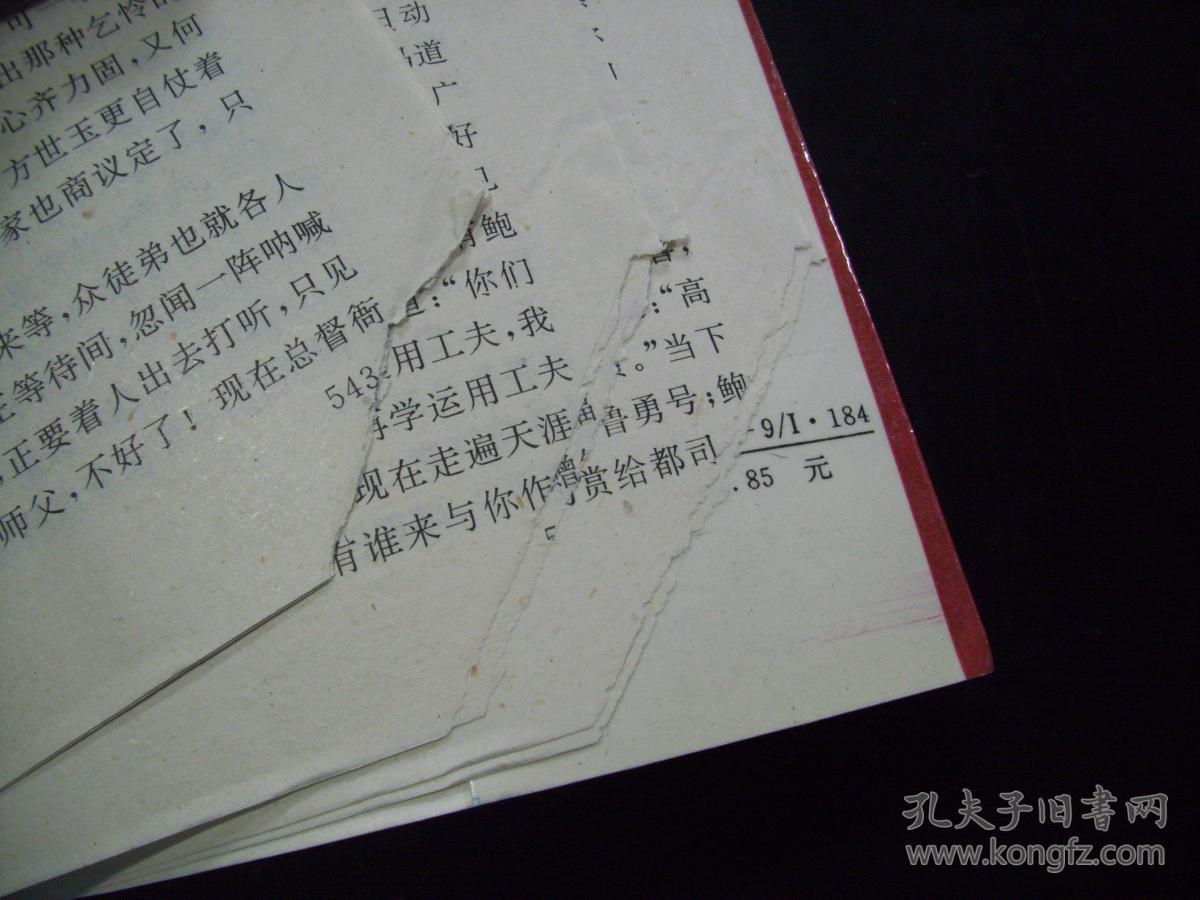 出那种乞怜
心齐力固,又何
方世玉更自仗着
家也商议定了,只
来等,众徒弟也就各人
等待间,忽闻一阵呐喊
,正要着人出去打听,只见
师父,不好了!现在总督衙
543
动
道
广
好
鲍
:“你们
用工夫,我
学运用工夫
现在走遍天涯
有谁来与你作
:“高
。”当下
勇号;鲍
赏给都司
9/I·184
.85 元
孔夫子旧书网
www.kongfz.com